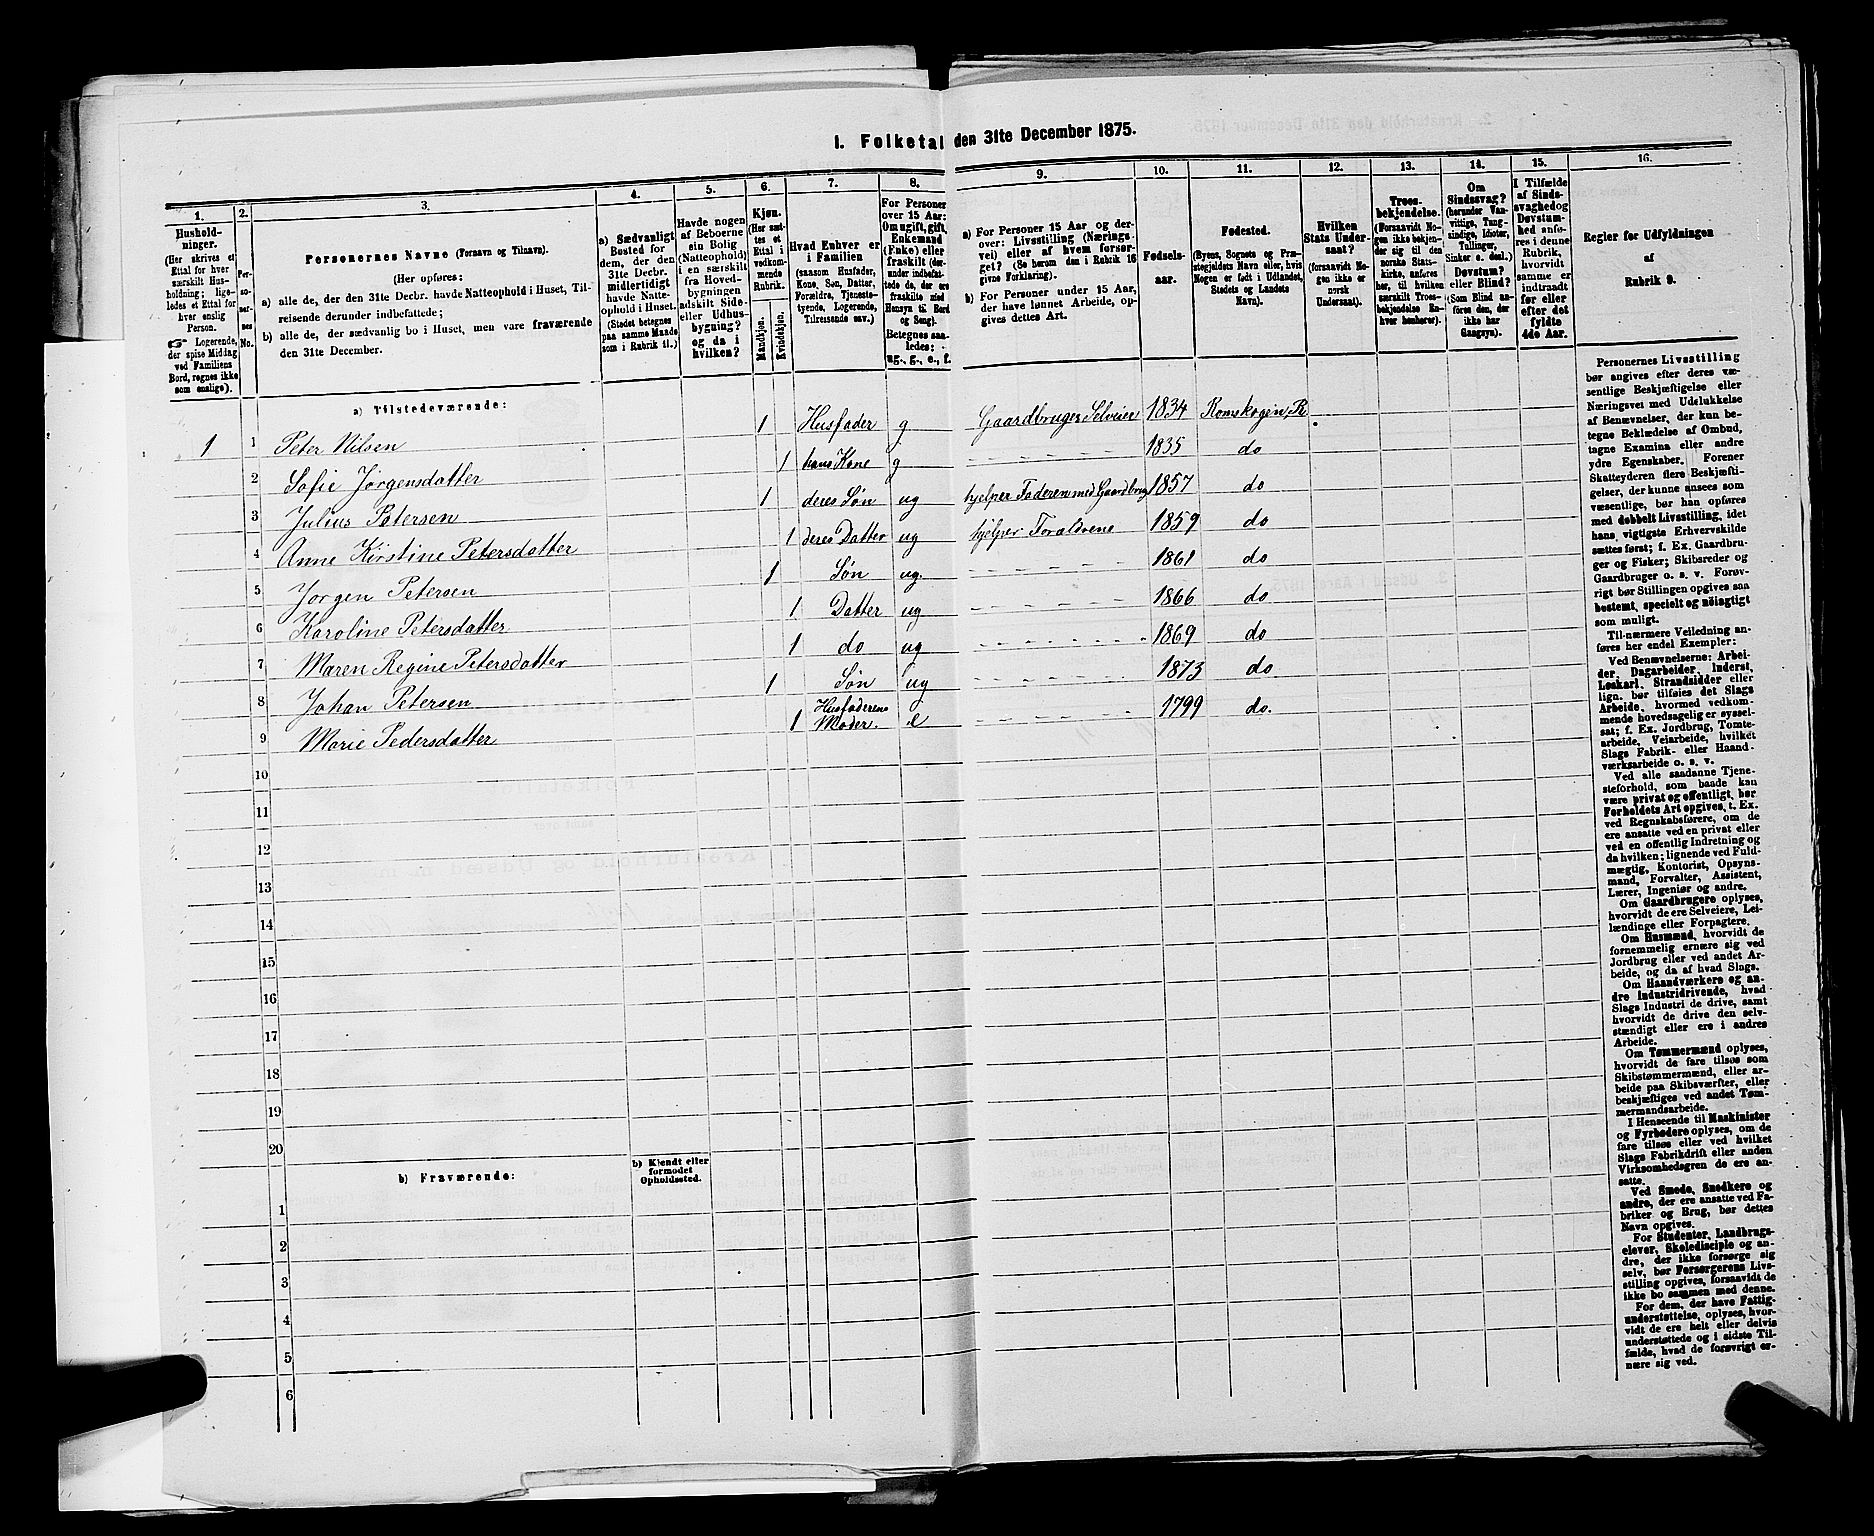 I. Folketal den 31te December 1875.
1. 2. 3. 4. 5. 6. 7. 8. 9. 10. 11. 12. 13. 14. 15. 16.
Hushold-
ninger.
(Her skrives et
Ettal for hver
særskilt Hus-
holdning; lige-
ledes et Ettal for
hver enslig
Person.
☞ Logerende,
der spise Middag
ved Familiens
Bord, regnes ikke
som enslige).
Per-
so-
ner-
nes
No.
Personernes Navne (Fornavn og Tilnavn).
(Her opføres:
a) alle de, der den 31te Decbr. havde Natteophold i Huset, Til-
reisende derunder indbefattede;
b) alle de, der sædvanlig bo i Huset, men vare fraværende
den 31te December.
a) Sædvanligt
Bosted for
dem, der den
31te Decbr.
midlertidigt
havde Natte-
ophold i Huset.
(Stedet betegnes
paa samme Maade
som i Rubrik 11.)
Havde nogen
af Beboerne
sin Bolig
(Natteophold)
i en særskilt
fra Hoved-
bygningen
adskilt Side-
eller Udhus-
bygning?
og da i
hvilken?
Kjøn.
(Her sæt-
tes et
Ettal i
vedkom-
mende
Rubrik.
Mandkjøn.
Kvindekjøn.
Hvad Enhver er
i Familien
(saasom Husfader,
Kone, Søn, Datter,
Forældre, Tjeneste-
tyende, Logerende,
Tilreisende osv.)
For Personer
over 15 Aar:
Om ugift, gift,
Enkemand
(Enke) eller
fraskilt (der-
under indbefat-
tede de, der ere
fraskilte med
Hensyn til Bord
og Seng).
Betegnes saa-
ledes:
ug., g., e., f.
a) For Personer 15 Aar og der-
over: Livsstilling (Nærings-
vei) eller af hvem forsør-
get? (Se herom den i Rubrik 16
givne Forklaring).
b) For Personer under 15 Aar,
der have lønnet Arbeide, op-
gives dettes Art.
Fødsels-
aar.
Fødested.
(Byens, Sognets og Præ-
stegjeldets Navn eller, hvis
Nogen er født i Udlandet,
Stedets og Landets
Navn).
Hvilken
Stats Under-
saat?
(forsaavidt No-
gen ikke er
norsk
Undersaat).
Troes-
bekjendelse.
(Forsaavidt No-
gen ikke bekjen-
der sig til den
norske Stats-
kirke, anføres
her, til hvilken
særskilt Troes-
bekjendelse En-
hver henhører).
Om
Sindssvag?
(herunder Van-
vittige, Tung-
sindige, Idioter,
Tullinger,
Sinker o. desl.)
Døvstum?
eller Blind?
(Som Blind an-
føres den, der
ikke har
Gangsyn).
I Tilfælde
af Sinds-
svaghed og
Døvstum-
hed anfø-
res i denne
Rubrik,
hvorvidt
samme er
indtraadt
før eller
efter det
fyldte
4de Aar.
Regler for Udfyldningen
af
Rubrik 9.
a) Tilstedeværende:
1 1 Peter Nilsen 1 Husfader g Gaardbruger Selveier 1834 Romskogen, R
2 Sofie Jørgensdatter 1 hans Kone g 1835 do
3 Julius Petersen 1 deres Søn ug hjelper Faderen med Gaardbrug 1857 do
4 Anne Kirstine Petersdatter 1 deres Datter ug hjelper Foraldrene 1859 do
5 Jørgen Petersen 1 Søn ug. 1861 do
6 Karoline Petersdatter 1 Datter ug 1866 do
7 Maren Regine Petersdatter 1 do ug 1869 do
8 Johan Petersen 1 Søn ug 1873 do
9 Marie Pedersdatter 1 Husfaderens Moder. e 1799 do.
10
11
12
13
14
15
16
17
18
19
20
b) Fraværende:
b) Kjendt eller
formodet
Opholdssted.
1
2
3
4
5
6
Personernes Livsstilling
bør angives efter deres væ-
sentlige Beskjæftigelse eller
Næringsvei med Udelukkelse
af Benævnelser, der kun be-
tegne Beklædelse af Ombud,
tagne Examina eller andre
ydre Egenskaber. Forener
Skatteyderen flere Beskjæfti-
gelser, der kunne ansees som
væsentlige, bør han opføres
med dobbelt Livsstilling, idet
hans vigtigste Erhvervskilde
sættes først; f. Ex. Gaardbru-
ger og Fisker; Skibsreder og
Gaardbruger o. s. v. Forøv-
rigt bør Stillingen opgives saa
bestemt, specielt og nöiagtigt
som muligt.
Til nærmere Veiledning an-
føres her endel Exempler:
Ved Benævnelserne: Arbei-
der, Dagarbeider, Inderst,
Løskarl, Strandsidder eller
lign. bør tilføies det Slags
Arbeide, hvormed vedkom-
mende hovedsagelig er syssel-
sat; f. Ex. Jordbrug, Tomte-
arbeide, Veiarbeide, hvilket
Slags Fabrik- eller Haand-
værksarbeide o. s. v.
Ved alle saadanne Tjene-
steforhold, som baade kan
være privat og offentligt, bør
Forholdets Art opgives, t. Ex.
ved Regnskabsførere, om de
ere ansatte ved en privat eller
ved en offentlig Indretning og
da hvilken; lignende ved Fuld-
mægtig, Kontorist, Opsyns-
mand, Forvalter, Assistent,
Lærer, Ingeniør og andre.
Om Gaardbrugere oplyses,
hvorvidt de ere Selveiere, Lei-
lændinge eller Forpagtere.
Om Husmænd, hvorvidt de
fornemmelig ernære sig ved
Jordbrug eller ved andet Ar-
beide, og da af hvad Slags.
Om Haandværkere og an-
dre Industridrivende, hvad
Slags Industri de drive, samt
hvorvidt de drive den selv-
stændigt eller ere i andres
Arbeide.
Om Tømmermænd oplyses,
hvorvidt de fare tilsøs som
Skibstømmermænd, eller ar-
beide paa Skibsværfter, eller
beskjæftiges ved andet Tøm-
mermandsarbeide.
I Henseende til Maskinister
og Fyrbødere oplyses, om de
fare tilsøs eller ved hvilket
Slags Fabrikdrift eller anden
Virksomhedsgren de ere an-
satte.
Ved Smede, Snedkere og
andre, der ere ansatte ved Fa-
briker og Brug, bør dettes
Navn opgives.
For Studenter, Landbrugs-
elever, Skoledisciple og an-
dre, der ikke forsørge sig
selv, bør Forsørgerens Livs-
stilling opgives, forsaavidt de
ikke bo sammen med denne.
For dem, der have Fattig-
understøttelse, oplyses, hvor-
vidt de ere helt eller delvis
understøttede og i sidste Til-
fælde, hvad de forøvrigt er-
nære sig ved.